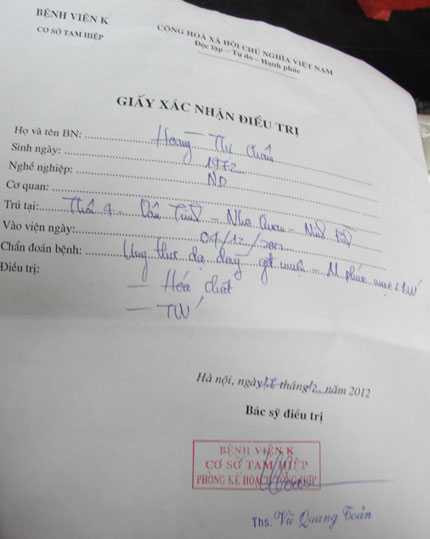 BỆNH VIỆN K
CƠ SỞ TAM HIỆP
CỘNG HOÀ XÃ HỘI CHỦ NGHĨA VIỆT NAM
Độc lập – Tự do – Hạnh phúc
GIẤY XÁC NHẬN ĐIỀU TRỊ
Họ và tên BN: Hoàng Thị
Sinh ngày: 1972
Nghề nghiệp: ND
Cơ quan:
Trú tại: Thôn 9 -
Vào viện ngày: 04/12/2012
Chẩn đoán bệnh: Ung thư dạ dày
Điều trị:
– Hoá chất
–
Hà nội, ngày tháng 12 năm 2012
Bác sỹ điều trị
BỆNH VIỆN K
CƠ SỞ TAM HIỆP
PHÒNG KẾ HOẠCH TỔNG HỢP
Ths. Vũ Quang Toản